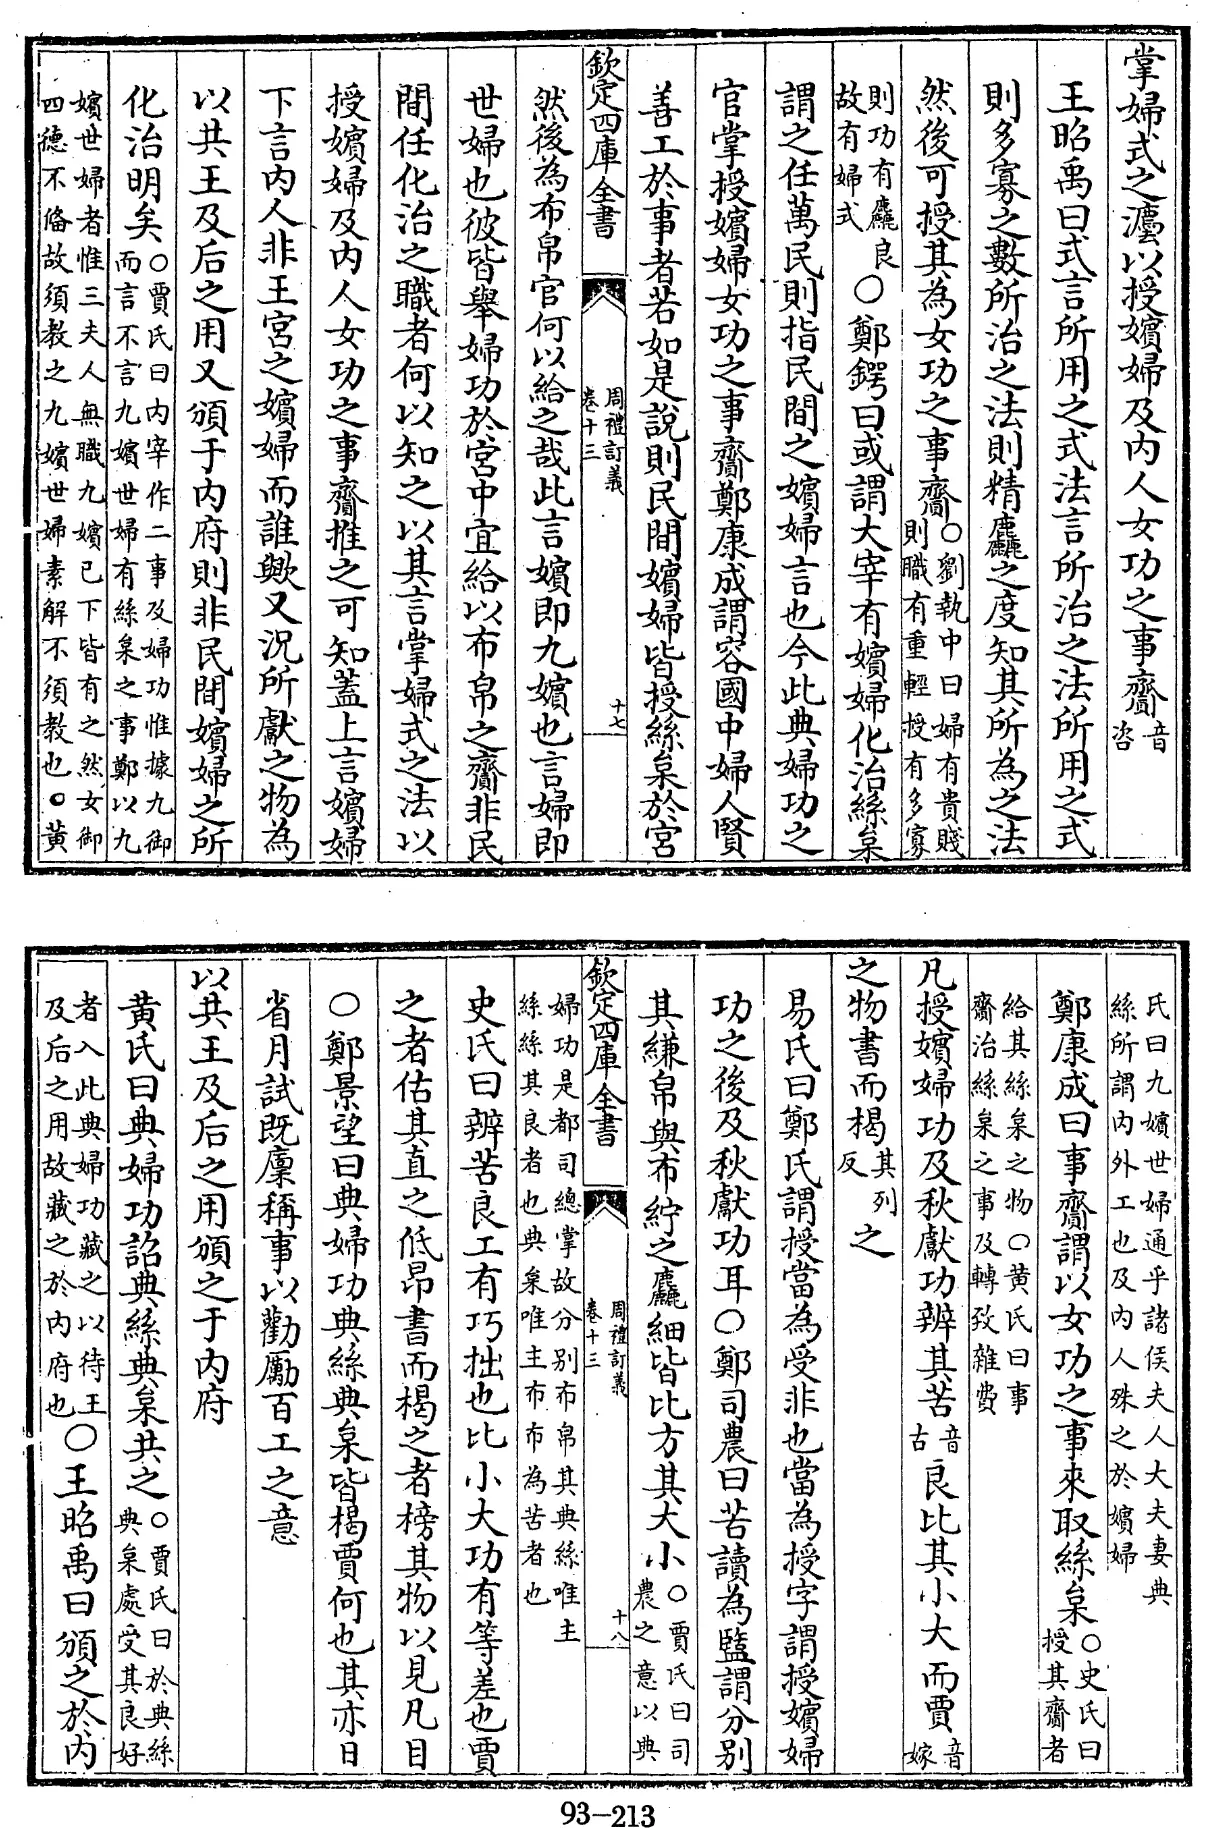 掌婦式之灋以授嬪婦及内人女功之事齎音咨
王昭禹曰式言所用之式法言所治之法所用之式
則多寡之數所治之法則精麤之度知其所為之法
然後可授其為女功之事齎○劉執中曰婦有貴賤則職有重輕授有多寡
則功有麤良故有婦式○鄭鍔曰或謂大宰有嬪婦化治絲枲
謂之任萬民則指民間之嬪婦言也今此典婦功之
官掌授嬪婦女功之事齎鄭康成謂容國中婦人賢
善工於事者若如是說則民間嬪婦皆授絲枲於宮
欽定四庫全書 周禮訂義 卷十三 十七
然後為布帛官何以給之哉此言嬪即九嬪也言婦即
世婦也彼皆舉婦功於宮中宜給以布帛之齎非民
間任化治之職者何以知之以其言掌婦式之法以
授嬪婦及内人女功之事齎推之可知蓋上言嬪婦
下言内人非王宮之嬪婦而誰歟又況所獻之物為
以共王及后之用又頒于内府則非民間嬪婦之所
化治明矣○賈氏曰内宰作二事及婦功惟據九御而言不言九嬪世婦有絲枲之事鄭以九
嬪世婦者惟三夫人無職九嬪已下皆有之然女御四德不備故須教之九嬪世婦素解不須教也○黄
氏曰九嬪世婦通乎諸侯夫人大夫妻典絲所謂内外工也及内人殊之於嬪婦
鄭康成曰事齎謂以女功之事來取絲枲○史氏曰授其齎者
給其絲枲之物○黄氏曰事齎治絲枲之事及轉致雜費
凡授嬪婦功及秋獻功辨其苦音古良比其小大而賈音嫁
之物書而楬其列反之
易氏曰鄭氏謂授當為受非也當為授字謂授嬪婦
功之後及秋獻功耳○鄭司農曰苦讀為盬謂分别
其縑帛與布紵之麤細皆比方其大小○賈氏曰司農之意以典
欽定四庫全書 周禮訂義 卷十三 十八
婦功是都司總掌故分别布帛其典絲唯主絲絲其良者也典枲唯主布布為苦者也
史氏曰辨苦良工有巧拙也比小大功有等差也賈
之者估其直之低昂書而楬之者榜其物以見凡目
○鄭景望曰典婦功典絲典枲皆楬賈何也其亦日
省月試既廩稱事以勸勵百工之意
以共王及后之用頒之于内府
黄氏曰典婦功詔典絲典枲共之○賈氏曰於典絲典枲處受其良好
者入此典婦功藏之以待王及后之用故藏之於内府也○王昭禹曰頒之於内
93-213